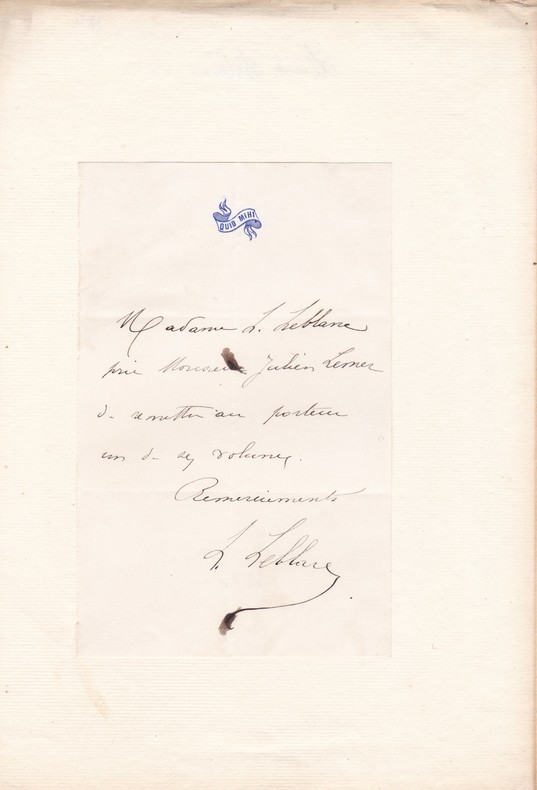 QUID MIHI
Madame L. Leblanc
prie Monsieur Julien Lemer
de remettre au porteur
un de ses volumes.
Remerciements
L. Leblanc